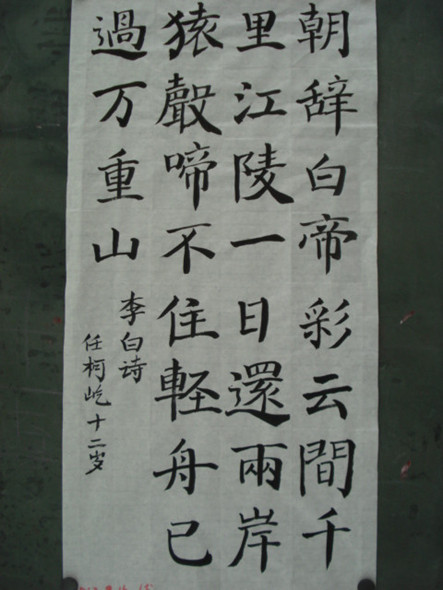 朝辞白帝彩云間千
里江陵一日還兩岸
猿聲啼不住軽舟已
過万重山
李白诗
任桐屹十二岁